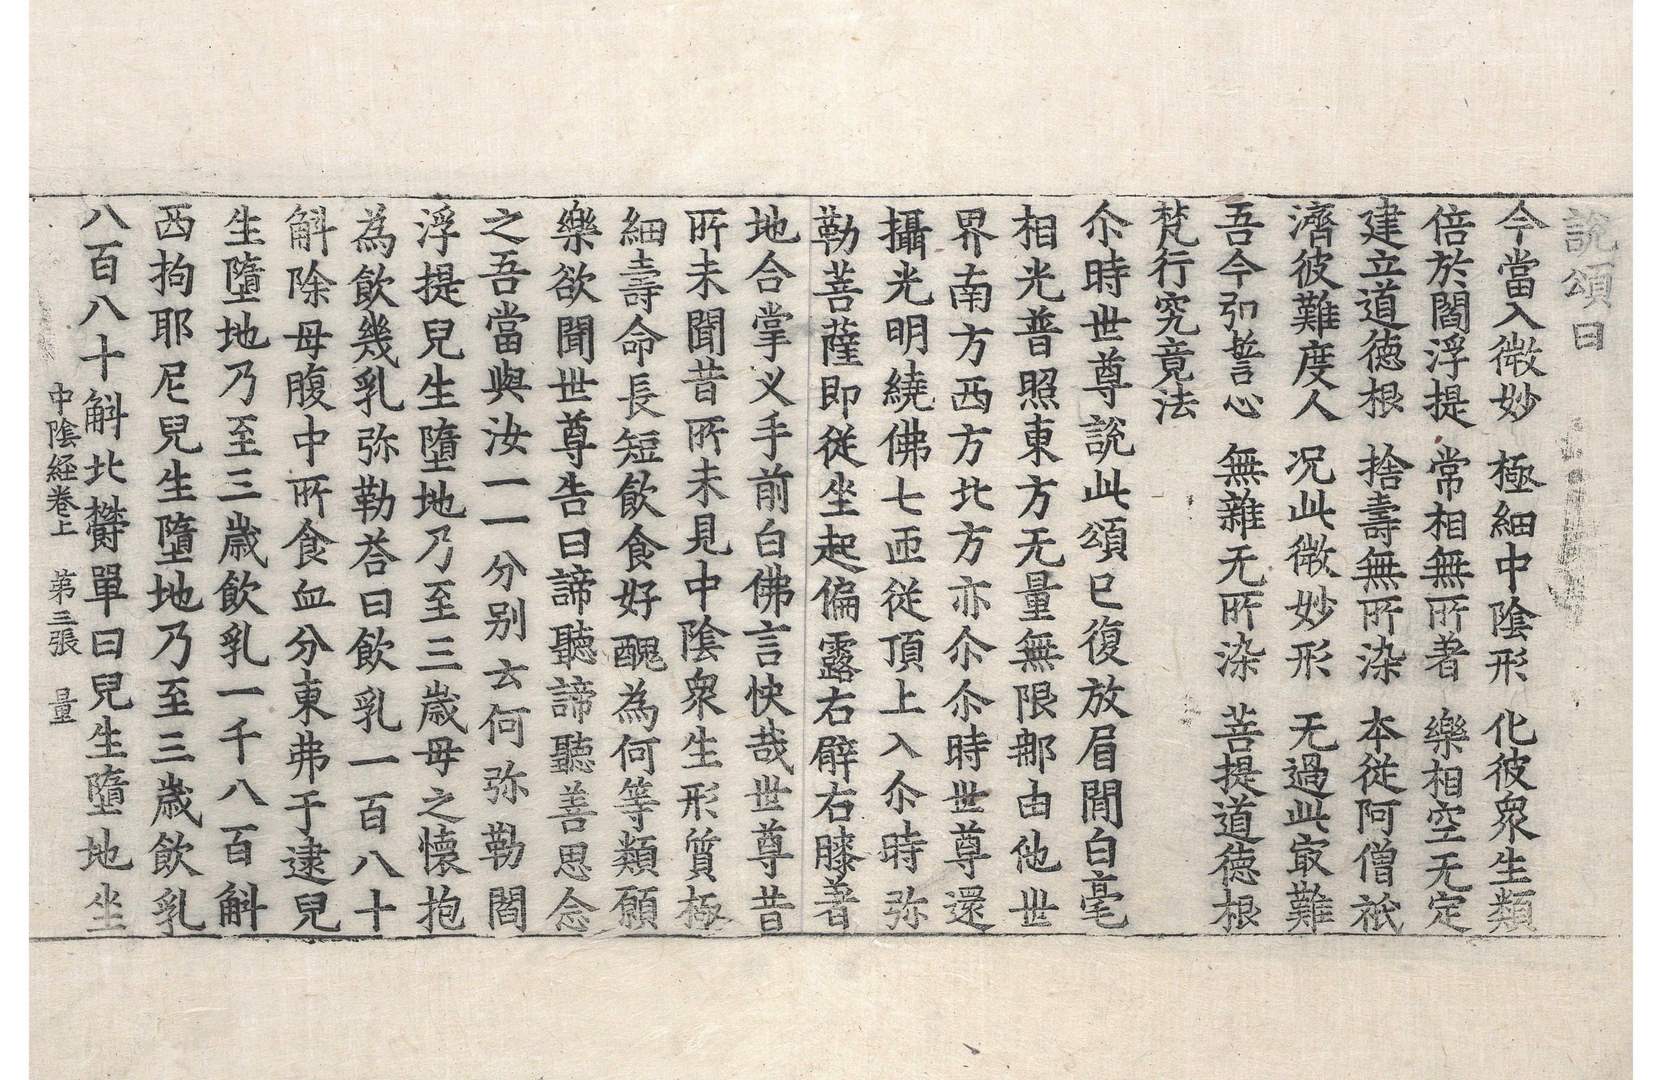 說頌曰
今當入微妙　極細中陰形　化彼衆生類
倍於閻浮提　常相無所著　樂相空无定
建立道德根　捨壽無所染　本從阿僧祇
濟彼難度人　况此微妙形　无過此㝡難
吾今弘誓心　無雜无所染　菩提道德根
梵行究竟法
尒時世尊說此頌已復放眉間白毫
相光普照東方无量無限鄣由他世
界南方西方北方亦尒尒時世尊還
攝光明繞佛七帀從頂上入尒時弥
勒菩薩即從坐起偏露右臂右膝著
地合掌叉手前白佛言快哉世尊昔
所未聞昔所未見中陰衆生形質極
細壽命長短飲食好醜為何等類願
樂欲聞世尊告曰諦聽諦聽善思念
之吾當與汝一一分别云何弥勒閻
浮提兒生墮地乃至三歲母之懷抱
為飲幾乳弥勒荅曰飲乳一百八十
斛除母腹中所食血分東弗于逮兒
生墮地乃至三歲飲乳一千八百斛
西拘耶尼兒生墮地乃至三歲飲乳
八百八十斛北欝單曰兒生墮地坐
中陰経卷上　第三張　量